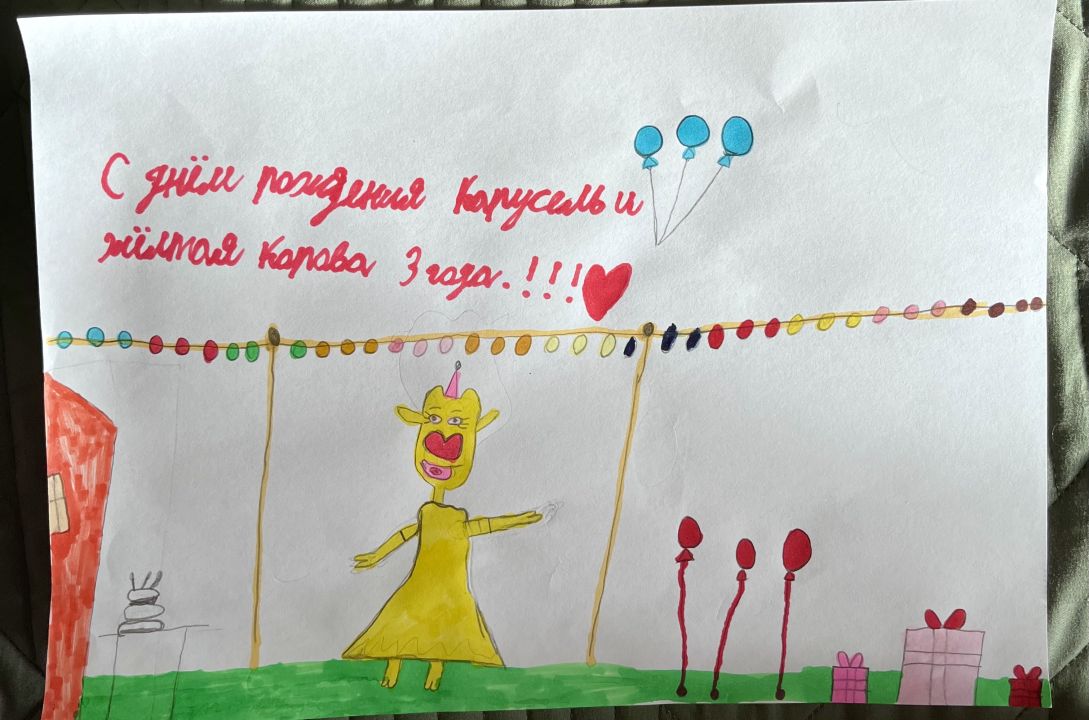 С днём рождения Карусель и
жёлтая Карова 3 года.!!!